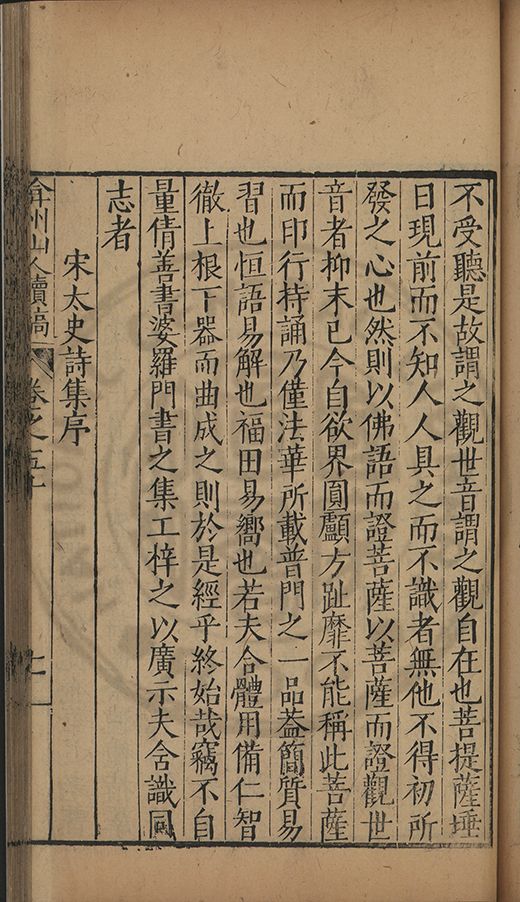 不受聽是故謂之觀世音謂之觀自在也菩提薩埵
日現前而不知人人具之而不識者無他不得初所
發之心也然則以佛語而證菩薩以菩薩而證觀世
音者抑末已今自欲界圓顱方趾靡不能稱此菩薩
而印行持誦乃僅法華所載普門之一品蓋簡質易
習也恒語易解也福田易嚮也若夫合體用備仁智
徹上根下器而曲成之則於是經乎終始哉竊不自
量倩善書婆羅門書之集工梓之以廣示夫含識同
志者
宋太史詩集序
弇州山人續稿 卷之五十